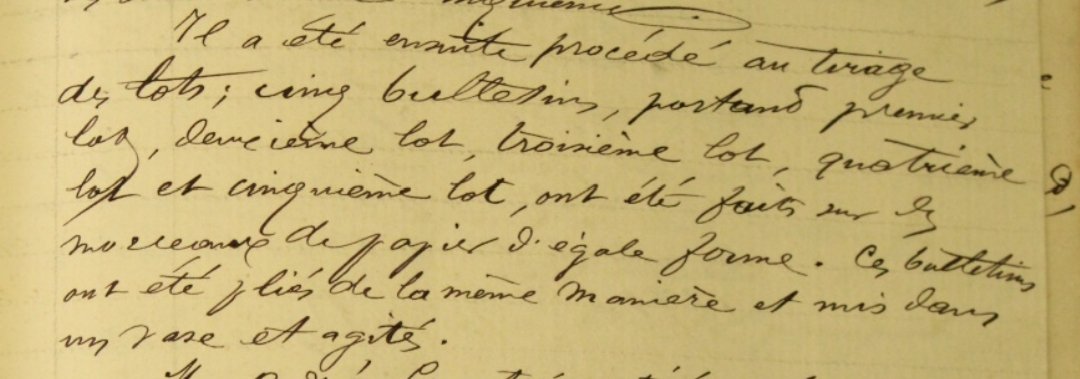 Il a été ensuite procédé au tirage
des lots ; cinq bulletins, portant premier
lot, deuxième lot, troisième lot, quatrième
lot et cinquième lot, ont été faits sur des
morceaux de papier d'égale forme. Ces bulletins
ont été pliés de la même manière et mis dans
un vase et agités.